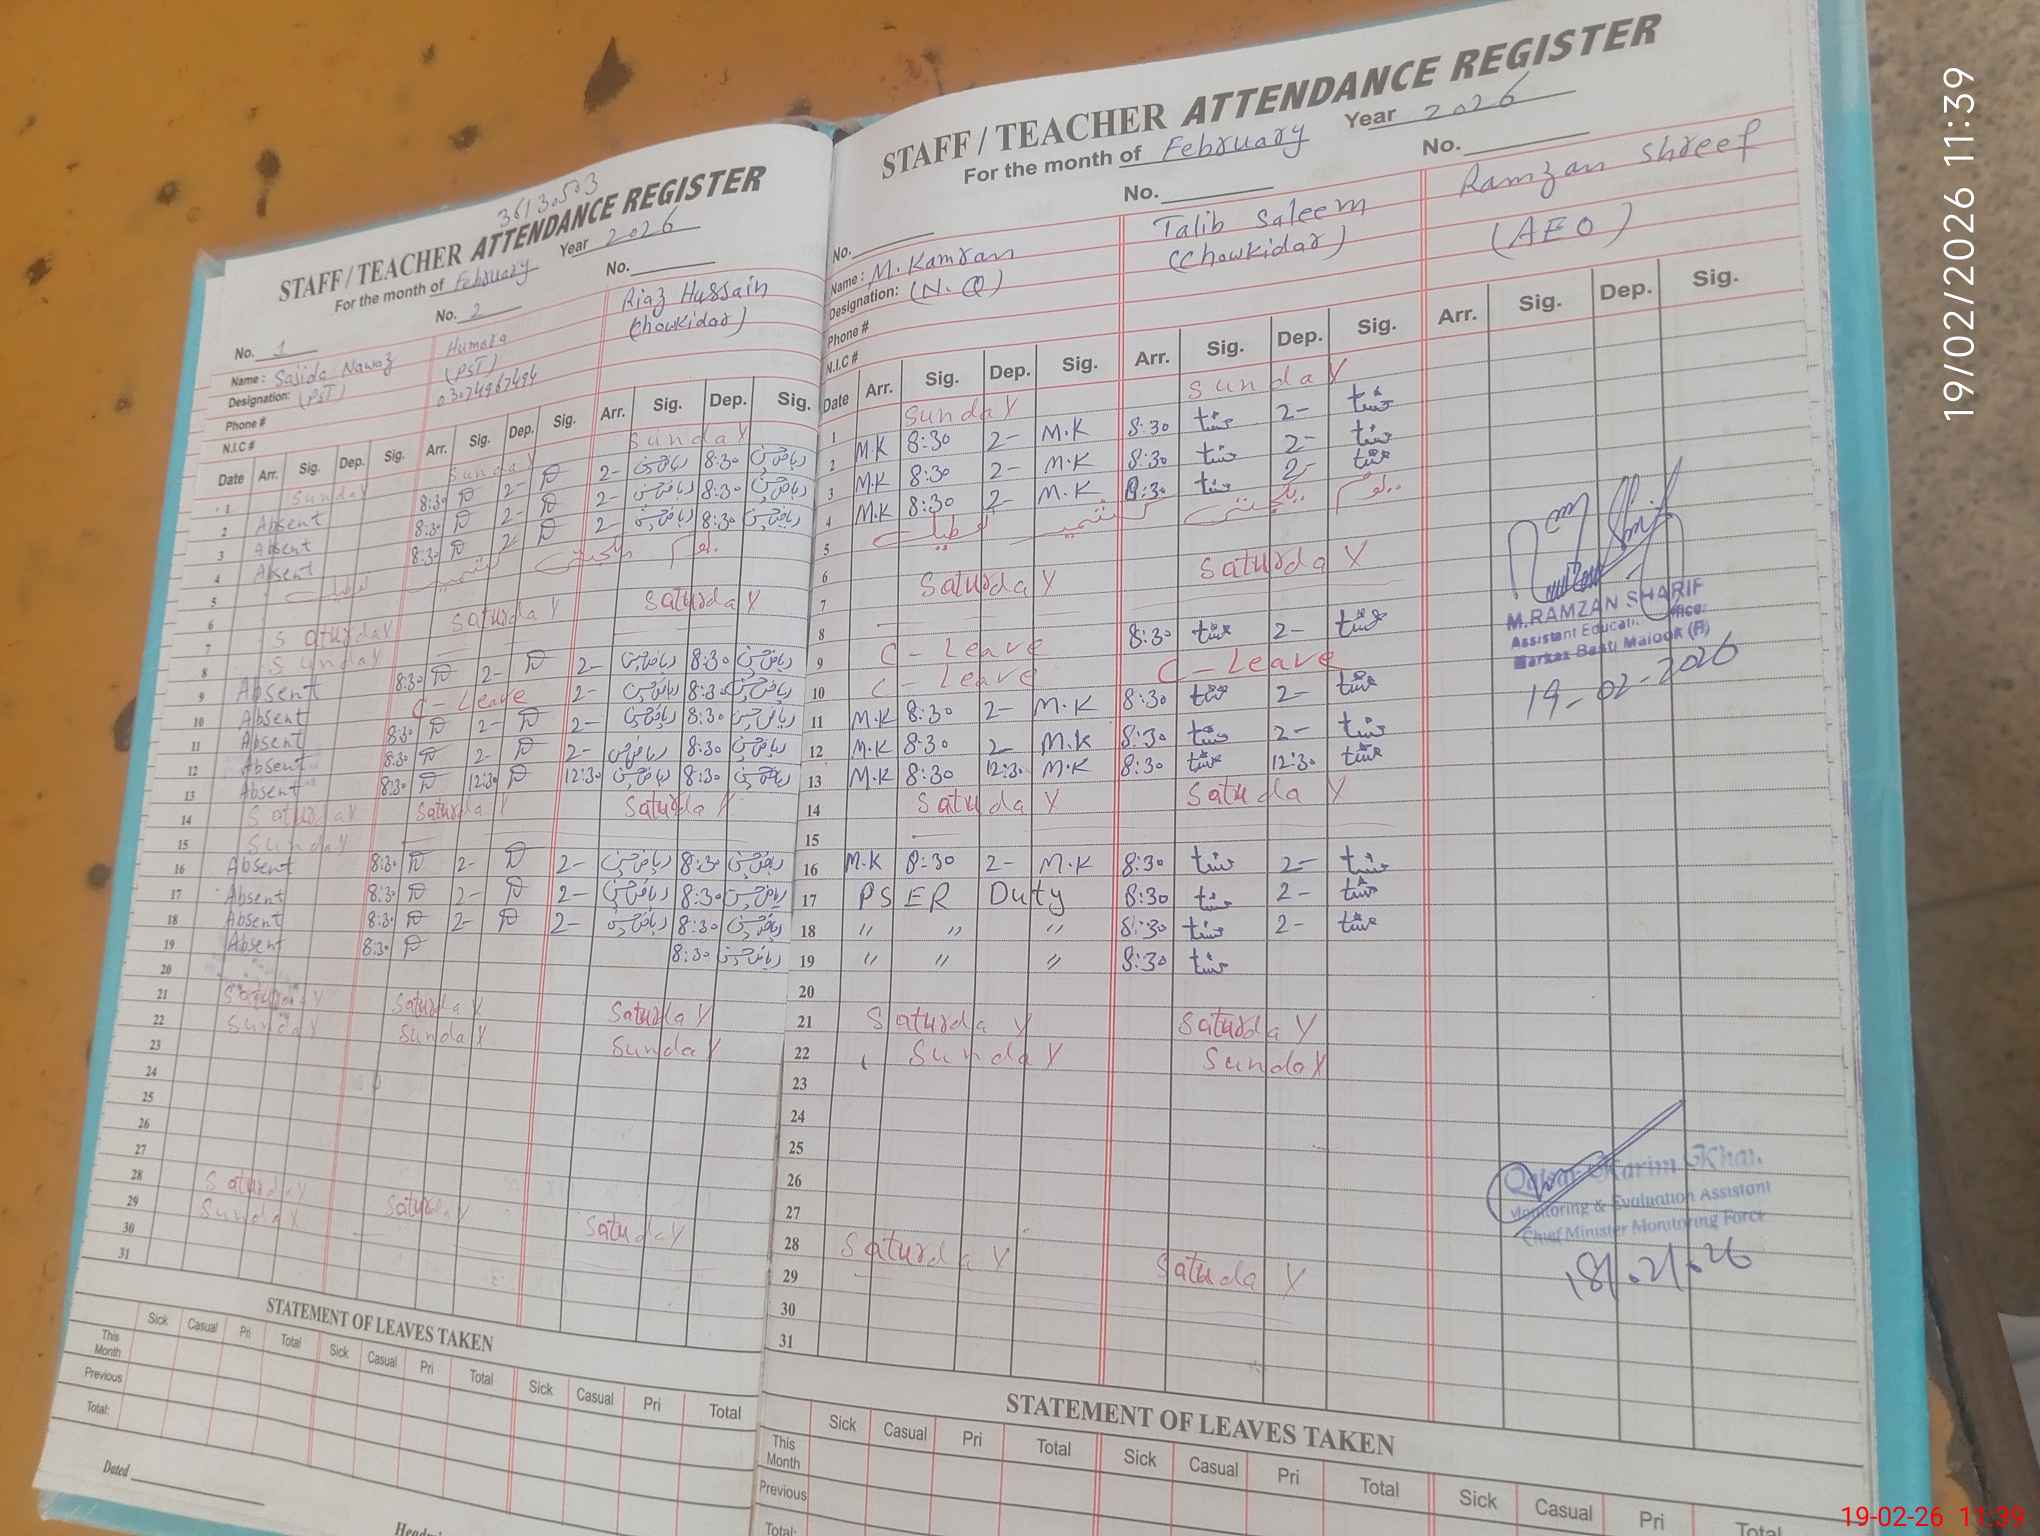 36130503
STAFF/TEACHER ATTENDANCE REGISTER
For the month of February Year 2026
No. 1 No. 2 No.
Name: Sajida Nawaz Humara Riaz Hussain
Designation: (PST) (PST) (Chowkidar)
Phone # 03074967494
N.I.C #
Date Arr. Sig. Dep. Sig. Arr. Sig. Dep. Sig. Arr. Sig. Dep. Sig.
1 Sunday Sunday Sunday
2 Absent 8:30 2- 2- ریاض حسین 8:30 ریاض حسین
3 Absent 8:30 2- 2- ریاض حسین 8:30 ریاض حسین
4 Absent 8:30 2- 2- ریاض حسین 8:30 ریاض حسین
5 تعطیل کشمیر یکجہتی یوم
6
7 Saturday Saturday Saturday
8 Sunday
9 Absent 8:30 2- 2- ریاض حسین 8:30 ریاض حسین
10 Absent C-Leave 2- ریاض حسین 8:30 ریاض حسین
11 Absent 8:30 2- 2- ریاض حسین 8:30 ریاض حسین
12 Absent 8:30 2- 2- ریاض حسین 8:30 ریاض حسین
13 Absent 8:30 12:30 12:30 ریاض حسین 8:30 ریاض حسین
14 Saturday Saturday Saturday
15 Sunday
16 Absent 8:30 2- 2- ریاض حسین 8:30 ریاض حسین
17 Absent 8:30 2- 2- ریاض حسین 8:30 ریاض حسین
18 Absent 8:30 2- 2- ریاض حسین 8:30 ریاض حسین
19 Absent 8:30 8:30 ریاض حسین
20
21 Saturday Saturday Saturday
22 Sunday Sunday Sunday
23
24
25
26
27
28 Saturday Saturday Saturday
29 Sunday
30
31
STATEMENT OF LEAVES TAKEN
Sick Casual Pri Total Sick Casual Pri Total Sick Casual Pri Total
This Month
Previous
Total:
Dated
STAFF/TEACHER ATTENDANCE REGISTER
For the month of February Year 2026
No. No. No.
Name: M. Kamran Talib Saleem Ramzan Shreef
Designation: (N.Q) (Chowkidar) (AEO)
Phone #
N.I.C #
Date Arr. Sig. Dep. Sig. Arr. Sig. Dep. Sig. Arr. Sig. Dep. Sig.
1 Sunday Sunday
2 M.K 8:30 2- M.K 8:30 2-
3 M.K 8:30 2- M.K 8:30 2-
4 M.K 8:30 2- M.K 8:30 2-
5 تعطیل کشمیر یکجہتی یوم
6
7 Saturday Saturday
8
9 C-Leave 8:30 2-
10 C-Leave C-Leave
11 M.K 8:30 2- M.K 8:30 2-
12 M.K 8:30 2- M.K 8:30 2-
13 M.K 8:30 12:30 M.K 8:30 12:30
14 Saturday Satuday
15
16 M.K 8:30 2- M.K 8:30 2-
17 PSER Duty 8:30 2-
18 〃 〃 〃 8:30 2-
19 〃 〃 〃 8:30
20
21 Saturday Saturday
22 Sunday Sunday
23
24
25
26
27
28 Saturday Satuday
29
30
31
M.RAMZAN SHARIF
Assistant Education Officer
Markaz Basti Malook (F)
19-02-2026
Karim Khan
Monitoring & Evaluation Assistant
Chief Minister Monitoring Force
18/.2/.26
STATEMENT OF LEAVES TAKEN
Sick Casual Pri Total Sick Casual Pri Total Sick Casual Pri Total
This Month
Previous
Total:
19/02/2026 11:39
19-02-26 11:39